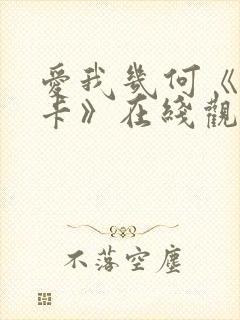 愛我幾何《
卡》在綫觀
不落空塵